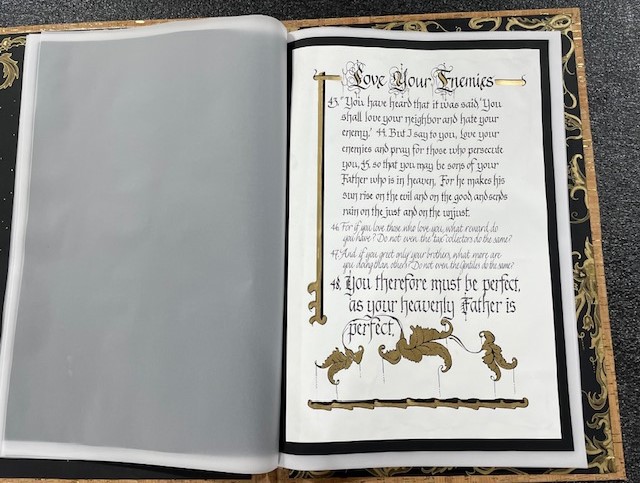 Love Your Enemies
43. "You have heard that it was said, 'You
shall love your neighbor and hate your
enemy.' 44. But I say to you, Love your
enemies and pray for those who persecute
you, 45. so that you may be sons of your
Father who is in heaven. For he makes his
sun rise on the evil and on the good, and sends
rain on the just and on the unjust.
46 For if you love those who love you, what reward do
you have? Do not even the tax collectors do the same?
47. And if you greet only your brothers, what more are
you doing than others? Do not even the Gentiles do the same?
48. You therefore must be perfect,
as your heavenly Father is
perfect.